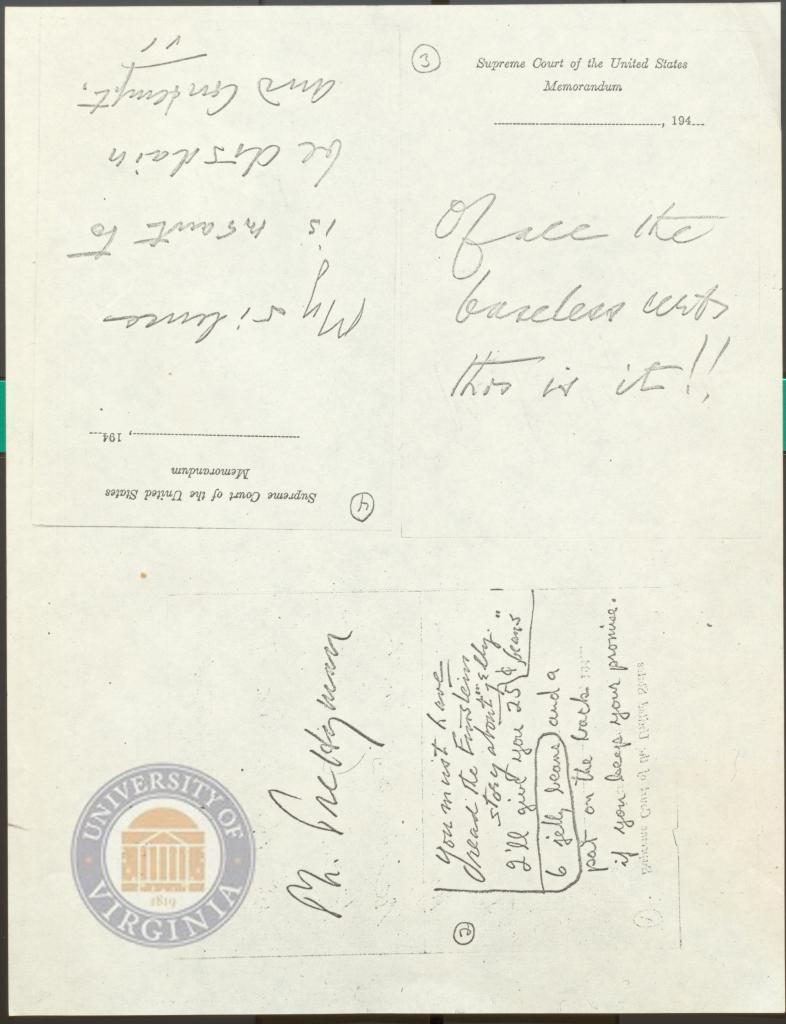 3
Supreme Court of the United States
Memorandum
, 194
Of all the
baseless
this is it!!
4
Supreme Court of the United States
Memorandum
, 194
My silence
is meant to
be disdain
and contempt.
Mr. Prettyman
2
You must have
read the Einstein
story about "jelly
beans"
I'll give you 25¢
6 jelly beans and a
pat on the back
if you keep your promise.
1
Supreme Court of the United States
UNIVERSITY OF
VIRGINIA
1819